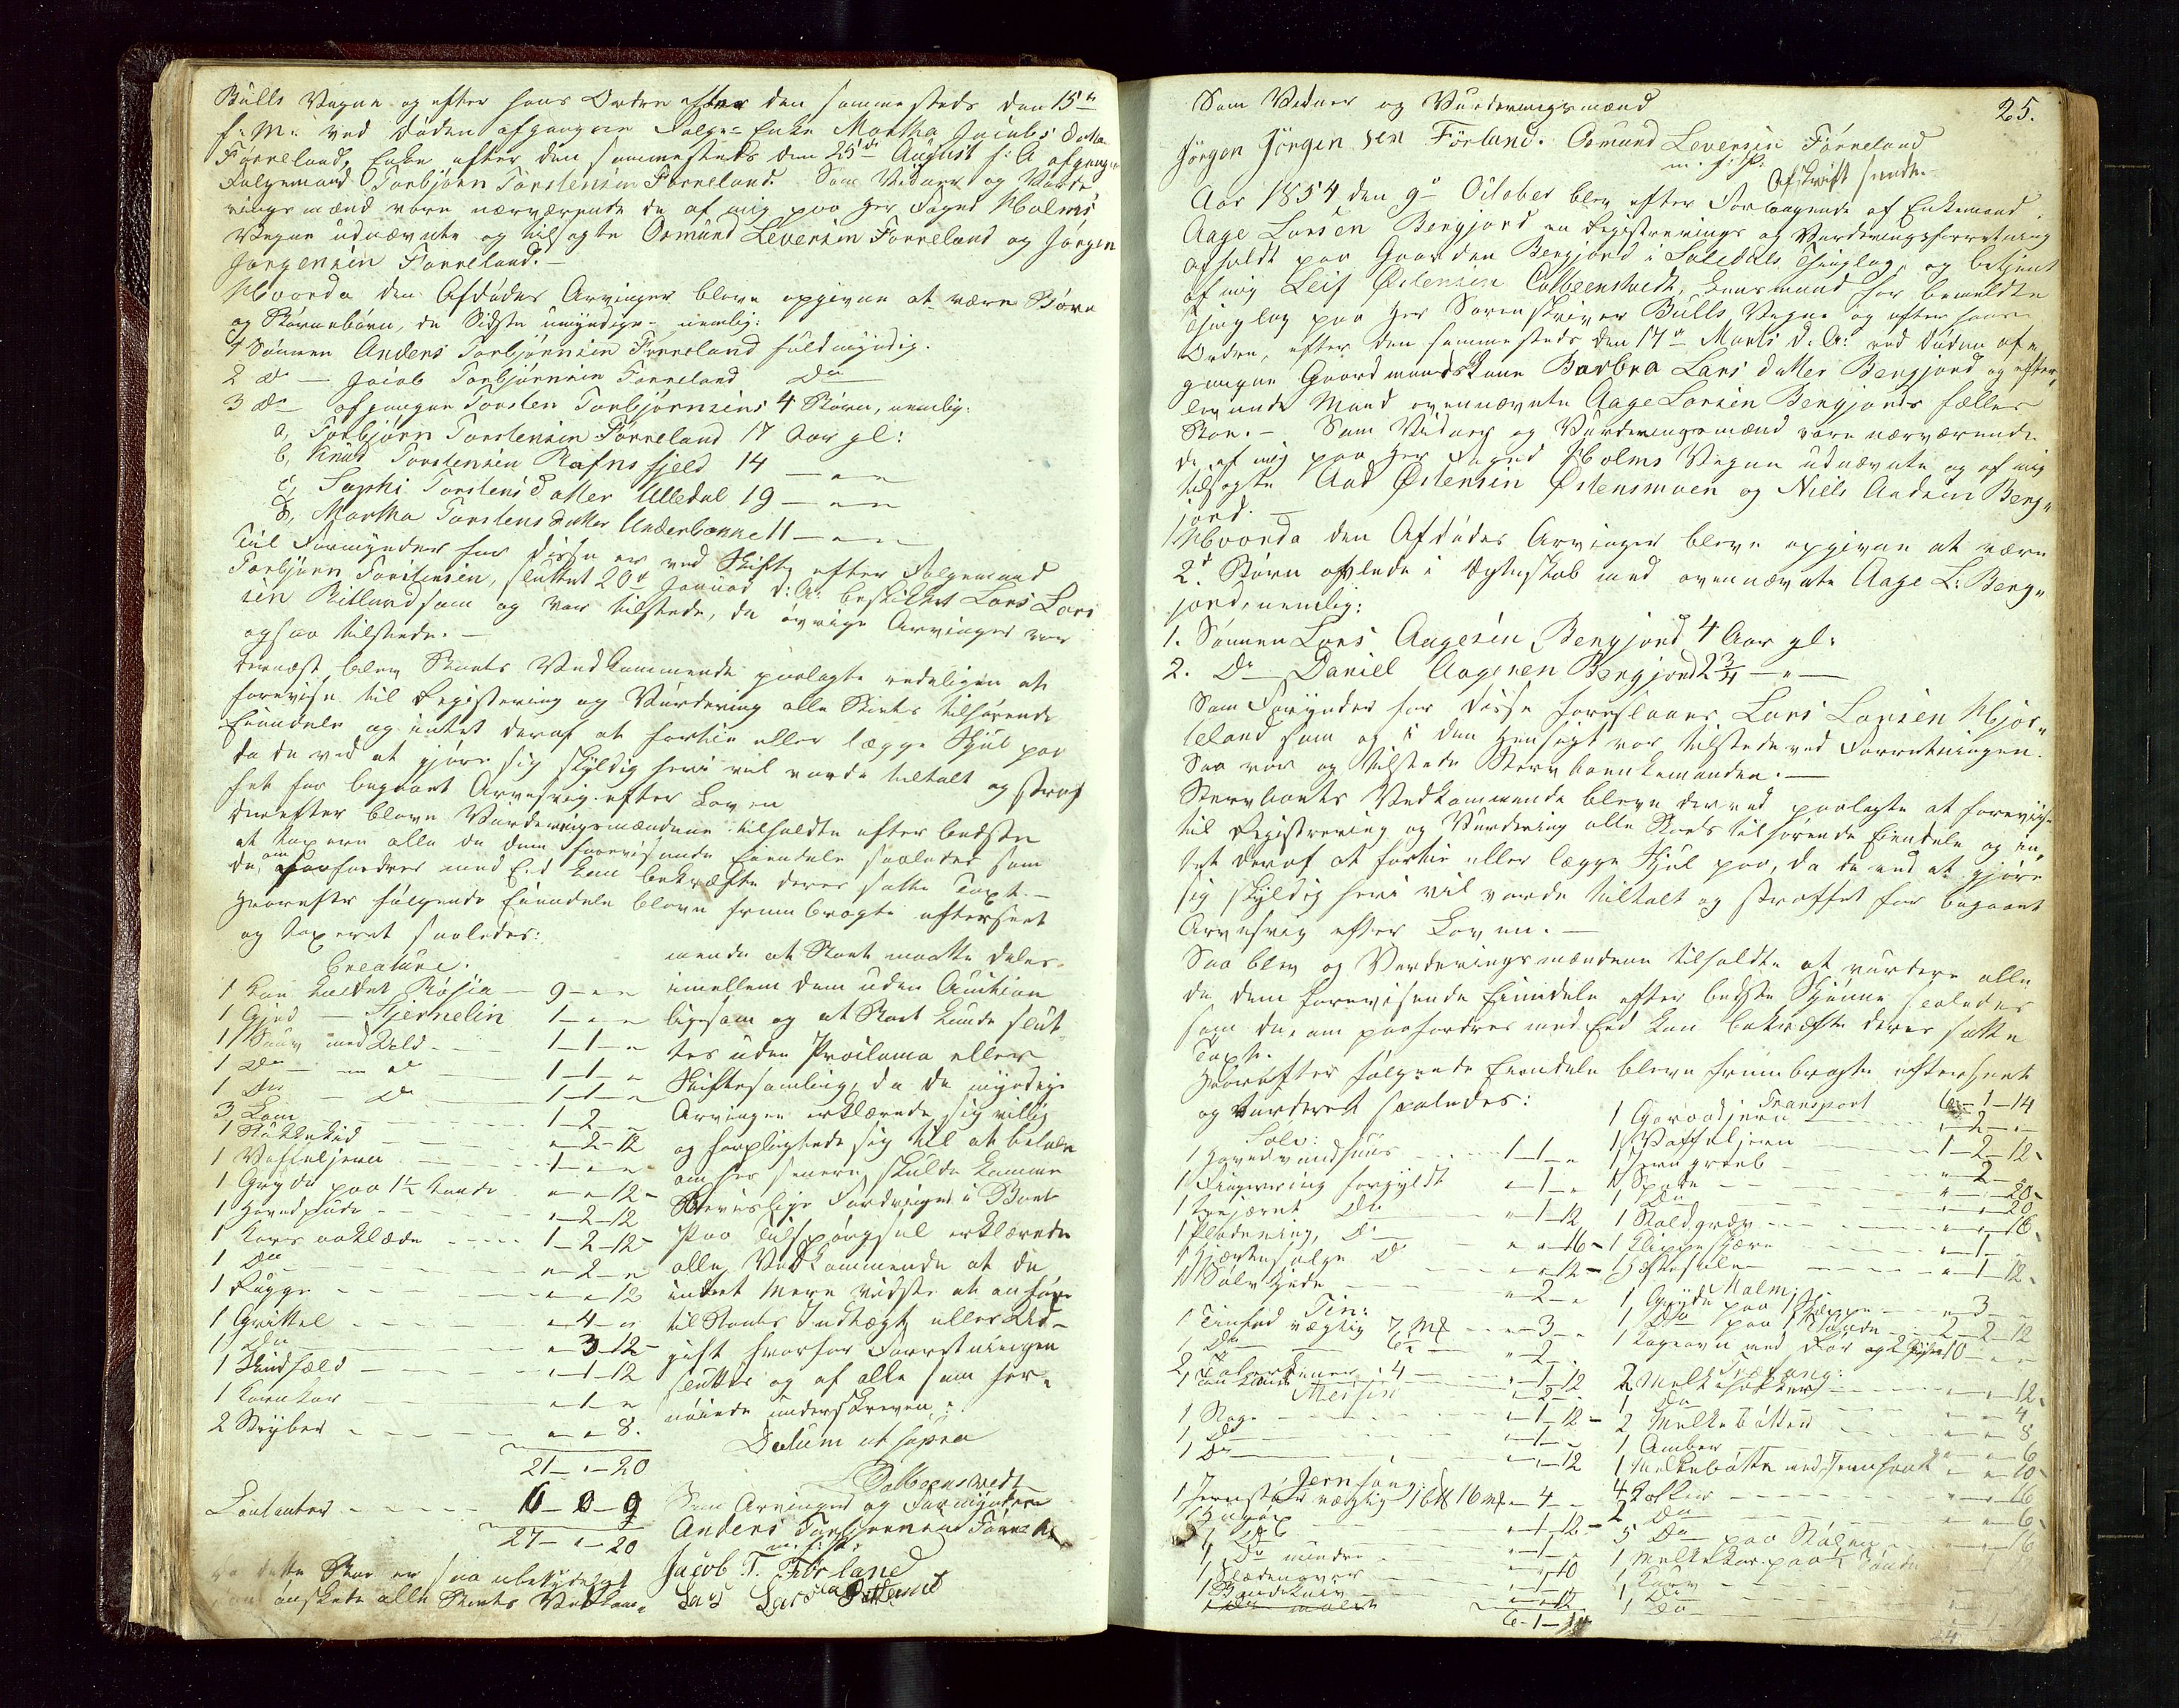 Bulls Vegne og efter hans Ordre efter den sammesteds den 15de
f: M: ved Døden afgangne Følge-Enke Martha Jacobsdatter
Førreland, Enke efter den sammesteds den 25de August f: A afgangne
Følgemand Torbjørn Torstensen Førreland. Som Vidner og Vurde-
ringsmænd vare nærværende de af mig paa Hr Foged Holms
Vegne udnævnte og tilsagte Osmund Levorsen Førreland og Jørgen
Jørgensen Førreland.—
Hvorda den Afdødes Arvinger bleve opgivne at være Børn
og Børnebørn, de Sidste umyndige- nemlig:
1 Sønnen Anders Torbjørnsen Førreland fuldmyndig.
2 do — Jacob Torbjørnsen Førreland do
3 do afgangne Torsten Torbjørnsens 4 Børn, nemlig:
a, Torbjørn Torstensen Førreland 17 Aar gl:
b, Knud Torstensen Rafnsfjeld 14 — " —
c, Sophi Torstensdatter Ulledal 19 — " —
d, Martha Torstensdatter Underbakke 11 — " —
Til Formynder for disse er ved Skiftet efter Følgemand
Torbjørn Torstensen, sluttet 20de Januar d: A: beskikket Lars Lar-
sen Ritland som og var tilstede, de øvrige Arvinger var
ogsaa tilstede.—
Dernæst blev Boets Vedkommende paalagte redeligen at
forevise til Registrering og Vurdering alle Boets tilhørende
Eiendele og intet deraf at fortie eller lægge Skjul paa
da de ved at gjøre sig skyldig heri vil vorde tiltalt og straf
fet for begaaet Arvesvig efter Loven
Derefter bleve Vurderingsmændene tilholdte efter bedste
at taxere alle de dem forevisende Eiendele saaledes som
de, om paafordres med Eed kan bekræfte deres satte Taxt.—
Hvorefter følgende Eiendele bleve frembragte efterseet
og taxeret saaledes:
Creature.
1 Koe kaldet Røsia — 9 - " - "
1 Gjed — Stjernelin 1 - " - "
1 Sauv med Veld - 1 - 1 - "
1 do — " do 1 - 1 - "
1 do — do 1 - 1 - "
3 Lam 1 - 2 - "
1 Støkkekid " - 2 - 12
1 Vaffeljern 1 - " - "
1 Gryde paa 1½ Kande " - " - 12 -
1 Hovedpude " - 2 - 12
1 Kors aaklæde 1 - 2 - 12 -
1 do " - 2 - "
1 Rugge " - " - 12
1 Grittel " - 4 - "
1 do " - 3 - 12 -
1 Skindfæld " - 1 - 12
1 Kornkar " - 1 - "
2 Stryber " - " - 8.
21 - " - 20
Contanter 6 - 0 - 0
27 - " - 20
da dette Boe er saa ubetydeligt
ønskede alle Boets Vedkom-
mende at Boet maatte deles
imellem dem uden Auction
ligesom og at Boet kunde slut
tes uden Proclama eller
Skiftesamling, da de myndige
Arvinger erklærede sig villig
og forpligtede sig til at betale
om her senere skulde komme
Bevislige Fordringer i Boet
Paa Tilspørgsel erklærede
alle Vedkommende at de
intet Mere vidste at anføre
til Boets Indtægt eller Ud-
gift hvorfor Forretningen
sluttes og af alle som for-
nøiede underskreven.
Datum ut supra
Colbeenstvedt
Som Arvinger og Formyndere
Anders Torbjørnsen Førreland
m. f. P.
Jacob T. Förland
Lars Larsen Ritland
25.
Som Vidner og Vurderingsmænd
Jörgen Jörgensen Förland. Osmund Levorsen Førreland
m. f. P.
Afskrift sendt
Aar 1854 den 9de October blev efter Forlangende af Enkemand
Aage Larsen Bergjord en Registrerings og Vurderingsforretning
afholdt paa Gaarden Bergjord i Suledals Thinglag, og betjent
af mig Leif Østensen Colbeenstvedt, Lensmand for bemeldte
Thinglag paa Hr Sorenskriver Bulls Vegne og efter hans
Ordre, efter den sammesteds den 17de Marts d. A: ved Døden af-
gangne Gaardmandskone Barbra Larsdatter Bergjord og efter-
levende Mand ovennævnte Aage Larsen Bergjords fælles
Boe.— Som Vidner og Vurderingsmænd vare nærværende
de af mig paa Hr Foged Holms Vegne udnævnte og af mig
tilsagte Aad Østensen Østensmoen og Niels Andsen Berg-
jord.—
Hvorda den Afdødes Arvinger bleve opgivne at være
2de Børn avlede i Ægteskab med ovennævnte Aage L: Berg-
jord, nemlig:
1. Sønnen Lars Aagesen Bergjord 4 Aar gl:
2. do Daniel Aagesen Bergjord 2¾ — " —
Som Formynder for disse foreslaaes Lars Larsen Hjor-
teland som og i den Hensigt var tilstede ved Forretningen.
Saa var og tilstede Stervboenkemanden.—
Stervboets Vedkommende bleve derved paalagte at forevise
til Registrering og Vurdering alle Boets tilhørende Eiendele og in-
tet deraf at fortie eller lægge Skjul paa, da de ved at gjøre
sig skyldig heri vil vorde tiltalt og straffet for begaaet
Arvesvig efter Loven.—
Saa blev og Vurderingsmændene tilholdte at vurdere alle
de dem forevisende Eiendele efter bedste Skjønne saaledes
som de, om paafordres med Eed kan bekræfte deres satte
Taxt.
Hvorefter følgende Eiendele bleve frembragte efterseet
og Vurderet saaledes:
Sølv:
1 Hovedvandhuus 1 - 1 - "
1 Fingerring forgyldt " - 1 - "
1 do " - 1 - 12
1 Pladering, do " - " - 16 -
1 do " - " - 12 -
1 Sølv Kjede " - 2 - "
Tin:
1 Tinfad vægtig 7 mk " - 3 - "
1 do 6 " " - 2 - "
2 Tallerkener 4 " - 1 - 12
" - 2 -
Messin
1 Stage " - 1 - 12 -
1 do " - 1 - "
1 do " - " - 12
Jernfang:
1 Jernstør vægtig 1 bl 16 mk - 4 -
1 Huqøx " - 1 - 12 -
1 do " - 1 -
1 do mindre " - " - 10
1 Slædenaver " - 1 - 10
1 Baandkniv " - " - 12
6 - 1 - 14
Transport 6 - 1 - 14
1 Goroadjern " - 2 - "
1 Vaffeljern 1 - 2 - 12 -
1 Jerngreeb " - 2 - "
1 Spade " - " - 20 -
1 do " - " - 20
1 Staldgrev " - " - 16
1 " - 1 -
1 " - 1 - 12 -
Malm:
1 Gryde paa 1 Skjeppe " - 3 - "
1 do paa 2 - 2 - 12
1 Kagovn med Rør 10 - " - "
Træfang:
2 Melkeholker " - " - 12 -
1 do " - " - 4
2 Melkebøtter " - " - 8
1 Amber " - " - 6
1 Melkebøtte med " - " - 10 -
4 Kopper " - " - 16
2 do " - " - 6 -
5 do paa Stølen " - " - 16
1 Melkekar paa
1 Kurv
1 do
1 do